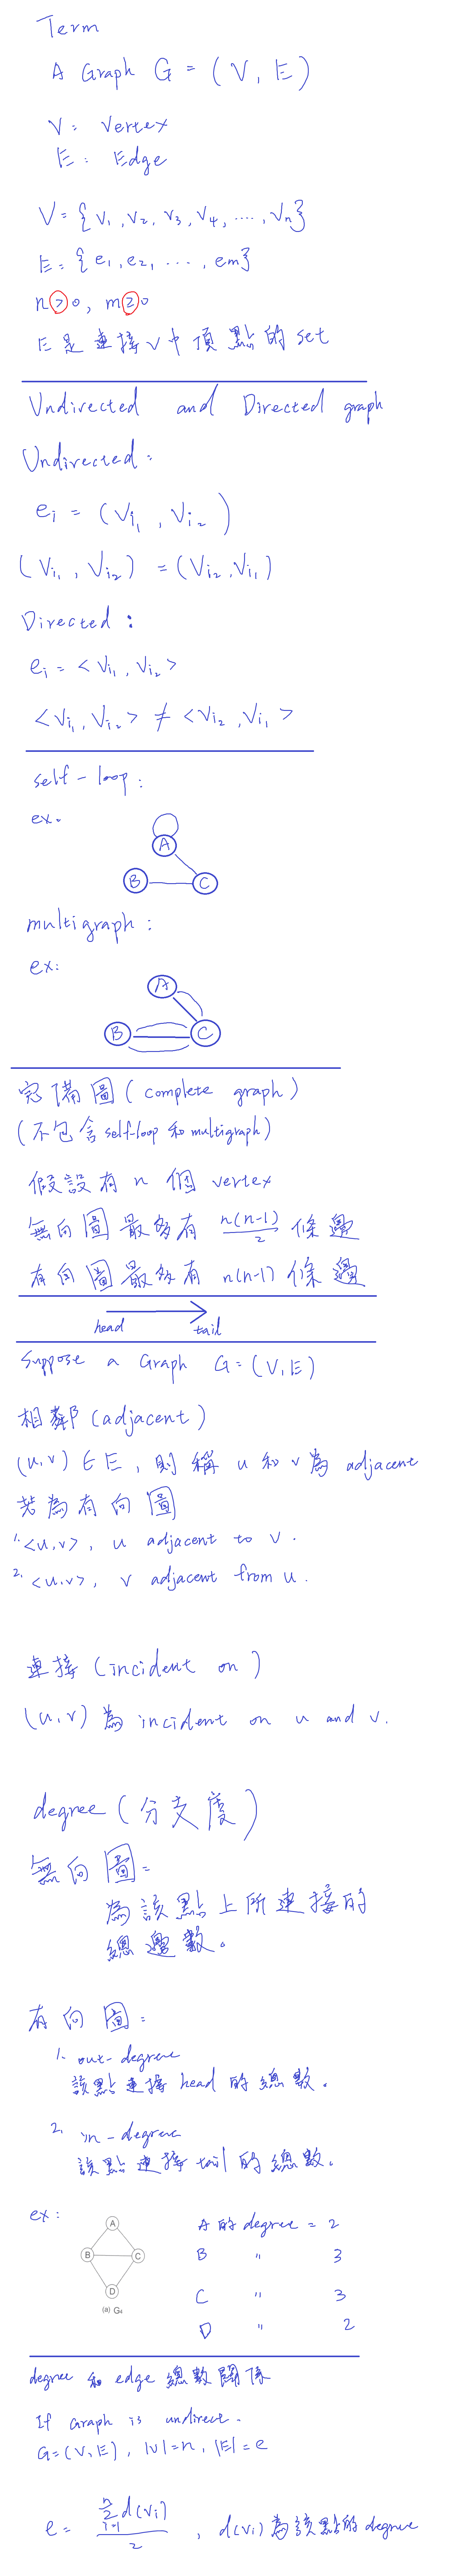 Term
A Graph G = (V, E)
V: Vertex
E: Edge
V = {v₁, v₂, v₃, v₄, ...., vₙ}
E = {e₁, e₂, ...., em}
n > 0, m ≥ 0
E是連接V中頂點的set
Undirected and Directed graph
Undirected:
eᵢ = (Vᵢ₁, Vᵢ₂)
(Vᵢ₁, Vᵢ₂) = (Vᵢ₂, Vᵢ₁)
Directed:
eᵢ = <Vᵢ₁, Vᵢ₂>
<Vᵢ₁, Vᵢ₂> ≠ <Vᵢ₂, Vᵢ₁>
self-loop:
ex.
A
B C
multigraph:
ex:
A
B C
完備圖(complete graph)
(不包含self-loop和multigraph)
假設有n個vertex
無向圖最多有 n(n-1)/2 條邊
有向圖最多有 n(n-1) 條邊
head tail
Suppose a Graph G=(V,E)
相鄰(adjacent)
(u,v)∈E, 則稱u和v為adjacent
若為有向圖
1. <u,v>, u adjacent to v.
2. <u,v>, v adjacent from u.
連接(incident on)
(u,v)為incident on u and v.
degree(分支度)
無向圖:
為該點上所連接的
總邊數。
有向圖:
1. out-degree
該點連接head的總數。
2. in-degree
該點連接tail的總數。
ex:
A
B C
D
(a) G₄
A的degree = 2
B " 3
C " 3
D " 2
degree和edge總數關係
If Graph is undirect.
G=(V,E), |V|=n, |E|=e
e = Σⁿᵢ₌₁ d(Vᵢ) / 2, d(Vᵢ)為該點的degree